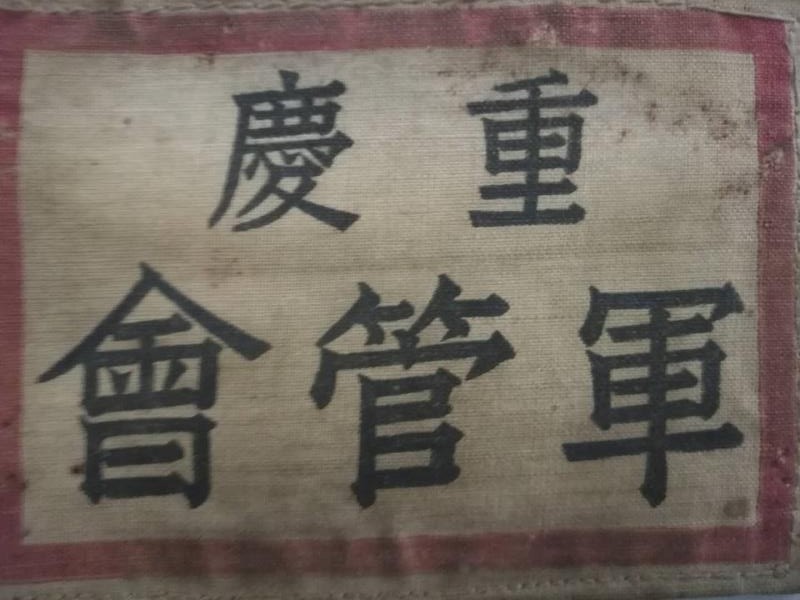 重慶
軍管會